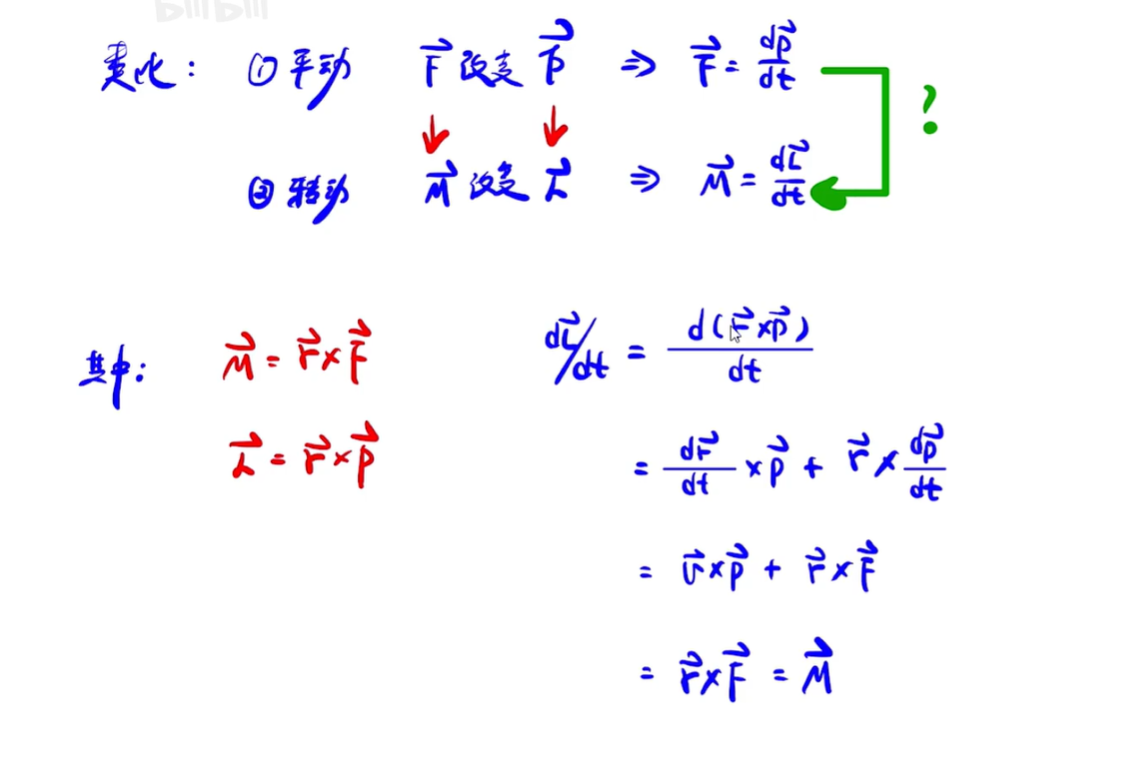 类比: ① 平动 F⃗ 改变 P⃗ ⇒ F⃗ = dP⃗/dt
?
② 转动 M⃗ 改变 L⃗ ⇒ M⃗ = dL⃗/dt
其中: M⃗ = r⃗ × F⃗
L⃗ = r⃗ × P⃗
dL⃗/dt = d(r⃗ × P⃗)/dt
= dr⃗/dt × P⃗ + r⃗ × dP⃗/dt
= v⃗ × P⃗ + r⃗ × F⃗
= r⃗ × F⃗ = M⃗